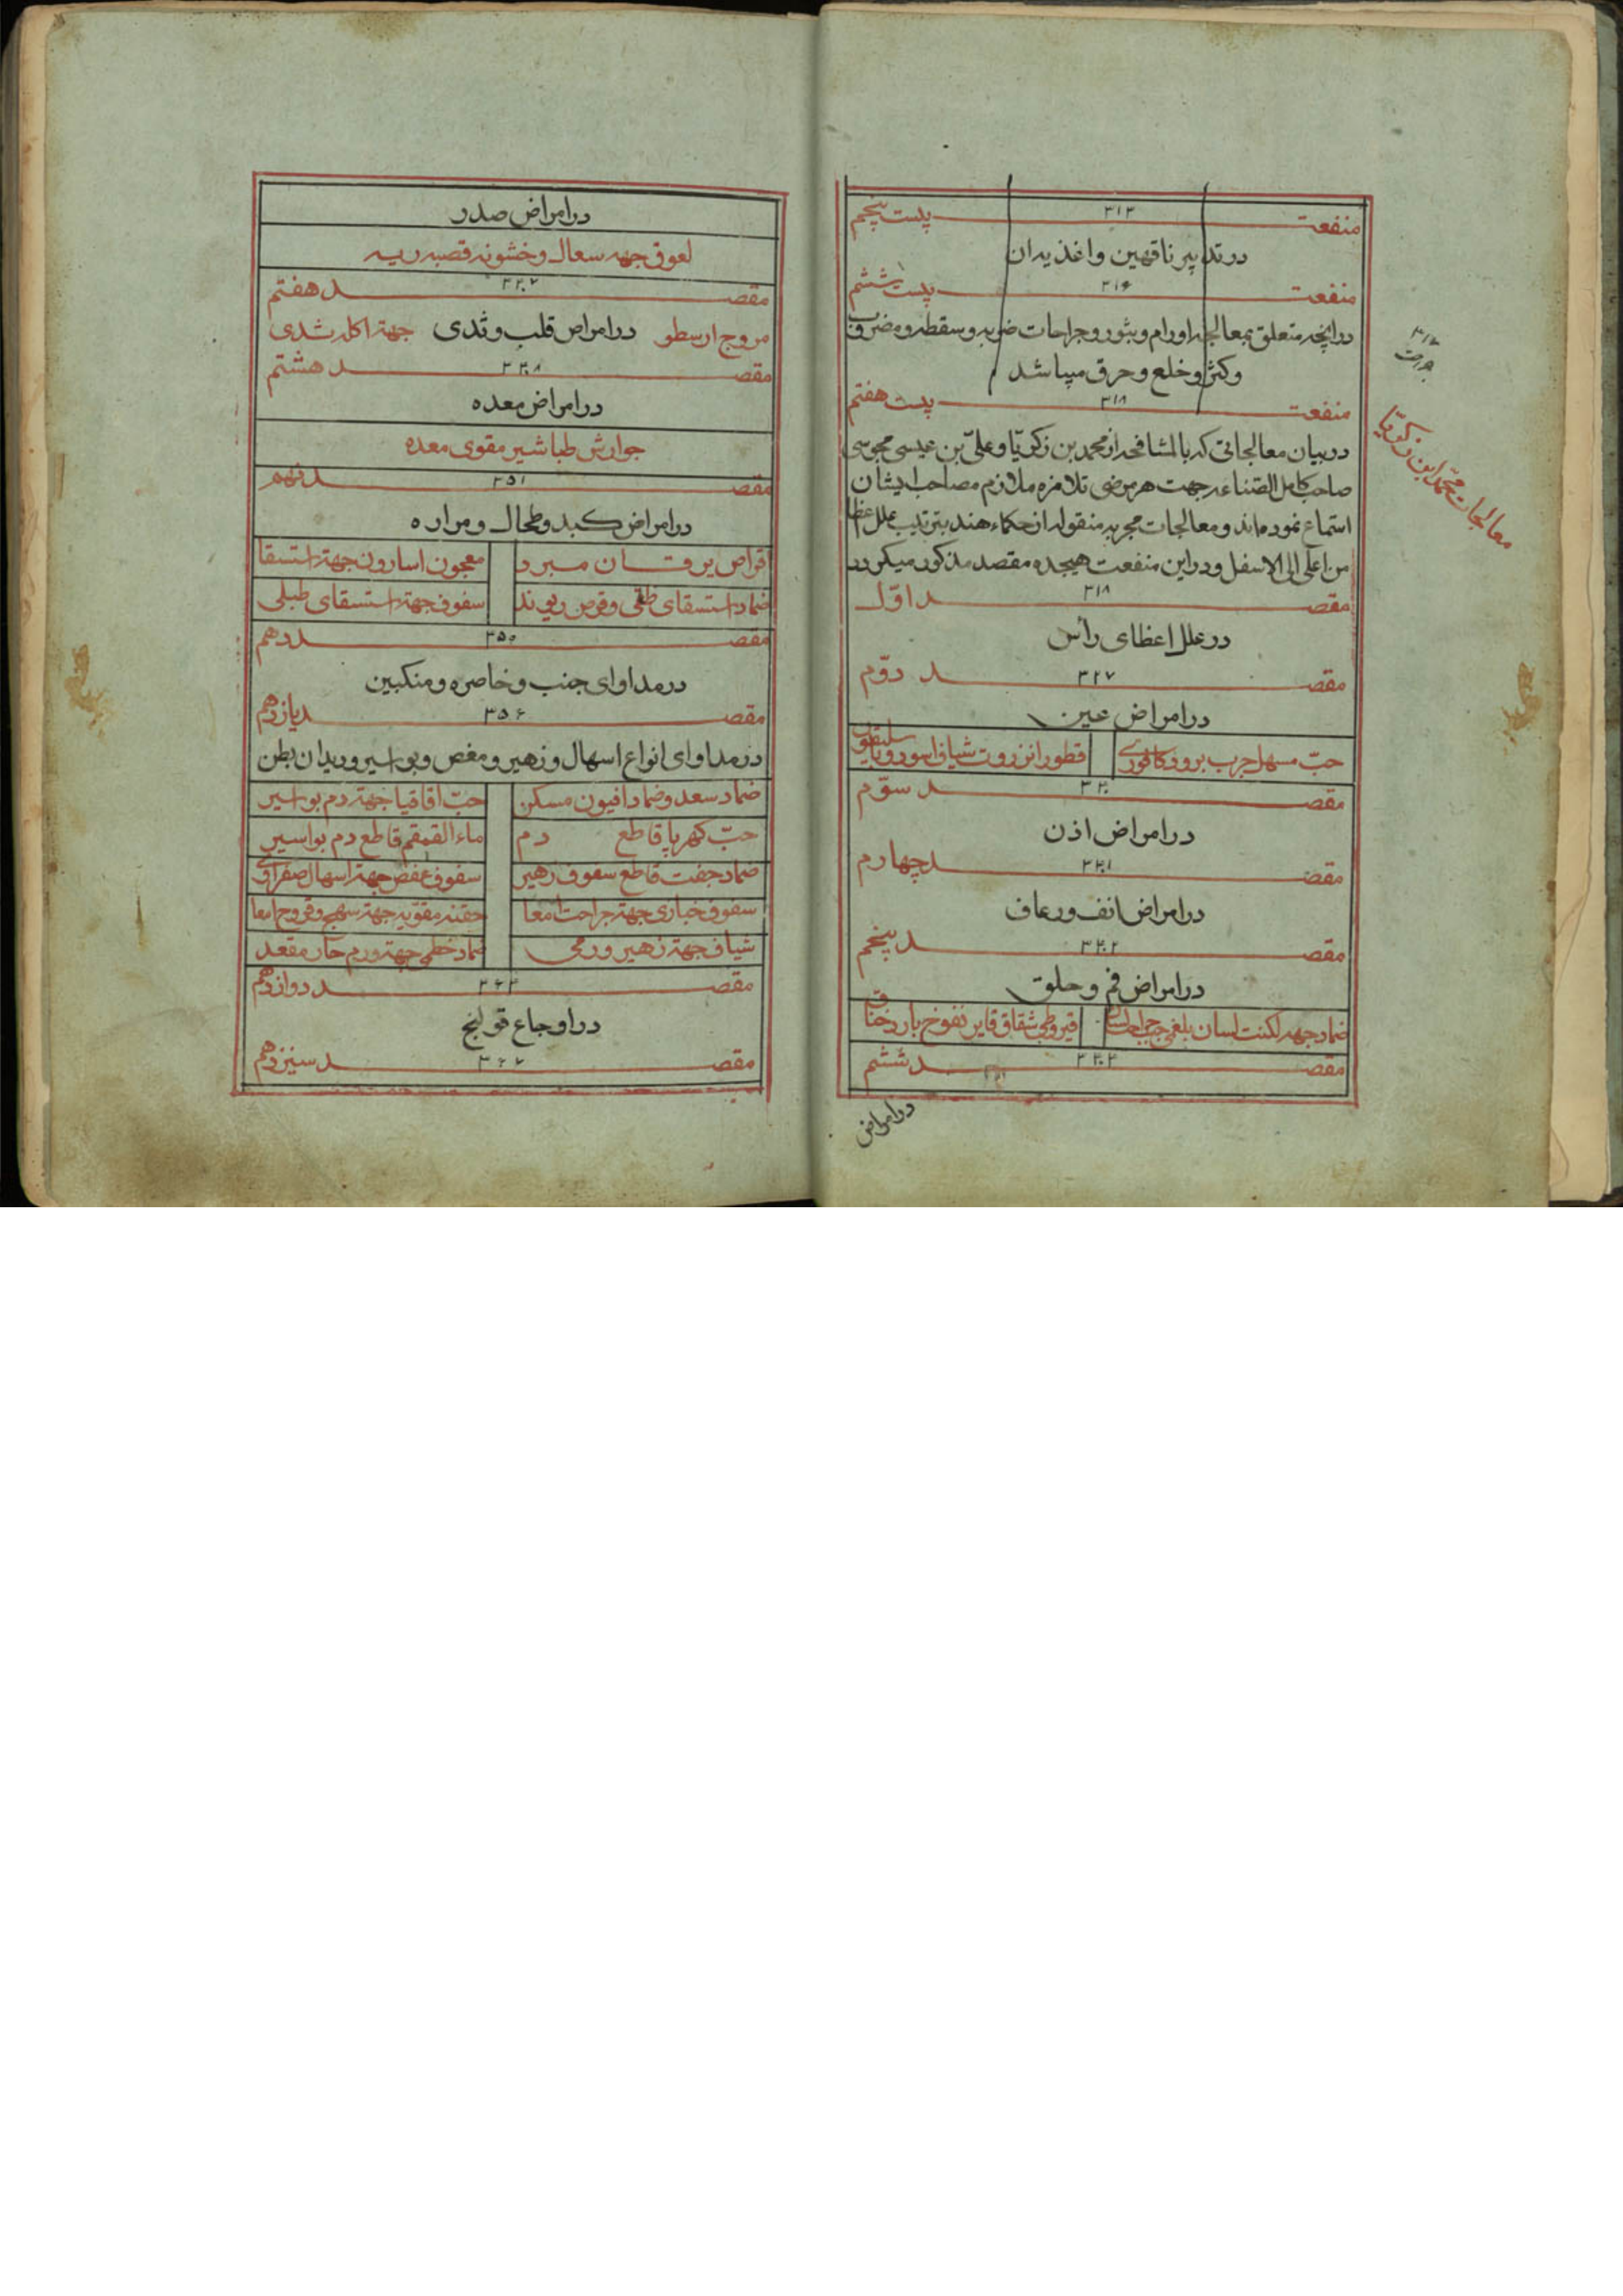 منفعت ۳۱۳ بیست پنجم
در تدابیر ناقهین و اغذیه ان
منفعت ۳۱۶ بیست ششم
در انچه متعلق بمعالجه اورام و بثور و جراحات ضربه و سقطه و مضروب
و کسر و خلع و حرق میباشد
منفعت ۳۱۸ بیست هفتم
در بیان معالجاتی که بالمشافحه از محمد بن زکریّا و علیّ بن عیسی مجوسی
صاحب کامل الصّناعه جهت هر مرضی تلامزه ملازم مصاحب ایشان
استماع نموده‌اند و معالجات مجربه منقوله از حکماء هند بترتیب علل اعظا
من اعلی الی الاسفل و در این منفعت هیجده مقصد مذکور میکردد
مقصد ۳۱۸ اوّل
در علل اعظای رأس
مقصد ۳۲۷ دوّم
در امراض عین
حبّ مسهل جرب برود کافوری قطور انزروت شیاف اسود و باسلیقون
مقصد سوّم
در امراض اذن
مقصد چهارم
در امراض انف و رعاف
مقصد پنجم
در امراض فم و حلق
ضماد جهه لکنت لسان بلغمی قیروطی شقاق نفوخ بارد خناق
مقصد ششم
در امراض
۳۱۷
معالجات محمد ابن زکریا
در امراض صدر
لعوق جهه سعال و خشونه قصبه ریه
مقصد هفتم
مروج ارسطو در امراض قلب و ثدی جهته اکله ثدی
مقصد هشتم
در امراض معده
جوارش طباشیر مقوی معده
مقصد ۳۵۱ نهم
در امراض کبد و طحال و مراره
اقراص یرقان مبرد معجون اسارون جهته استسقا
ضماد استسقای زقی و قرص ریوند سفوف جهته استسقای طبلی
مقصد ۳۵۵ دهم
در مداوای جنب و خاصره و منکبین
مقصد ۳۵۶ یازدهم
در مداوای انواع اسهال و زهیر و مغص و بواسیر و دیدان بطن
ضماد سعد و ضماد افیون مسکن حبّ اقاقیا جهته دم بواسیر
حبّ کهرپا قاطع دم ماء القمقم قاطع دم بواسیر
ضماد جفت قاطع سفوف زهیر سفوف عفص جهته اسهال صفراوی
سفوف خبازی جهته جراحت امعا حقنه مقویه جهته سحج و قروح امعا
شیاف جهته زهیر ورمی ضماد خطمی جهته ورم حار مقعد
مقصد ۳۶۳ دوازدهم
در اوجاع قولنج
مقصد ۳۶۷ سیزدهم